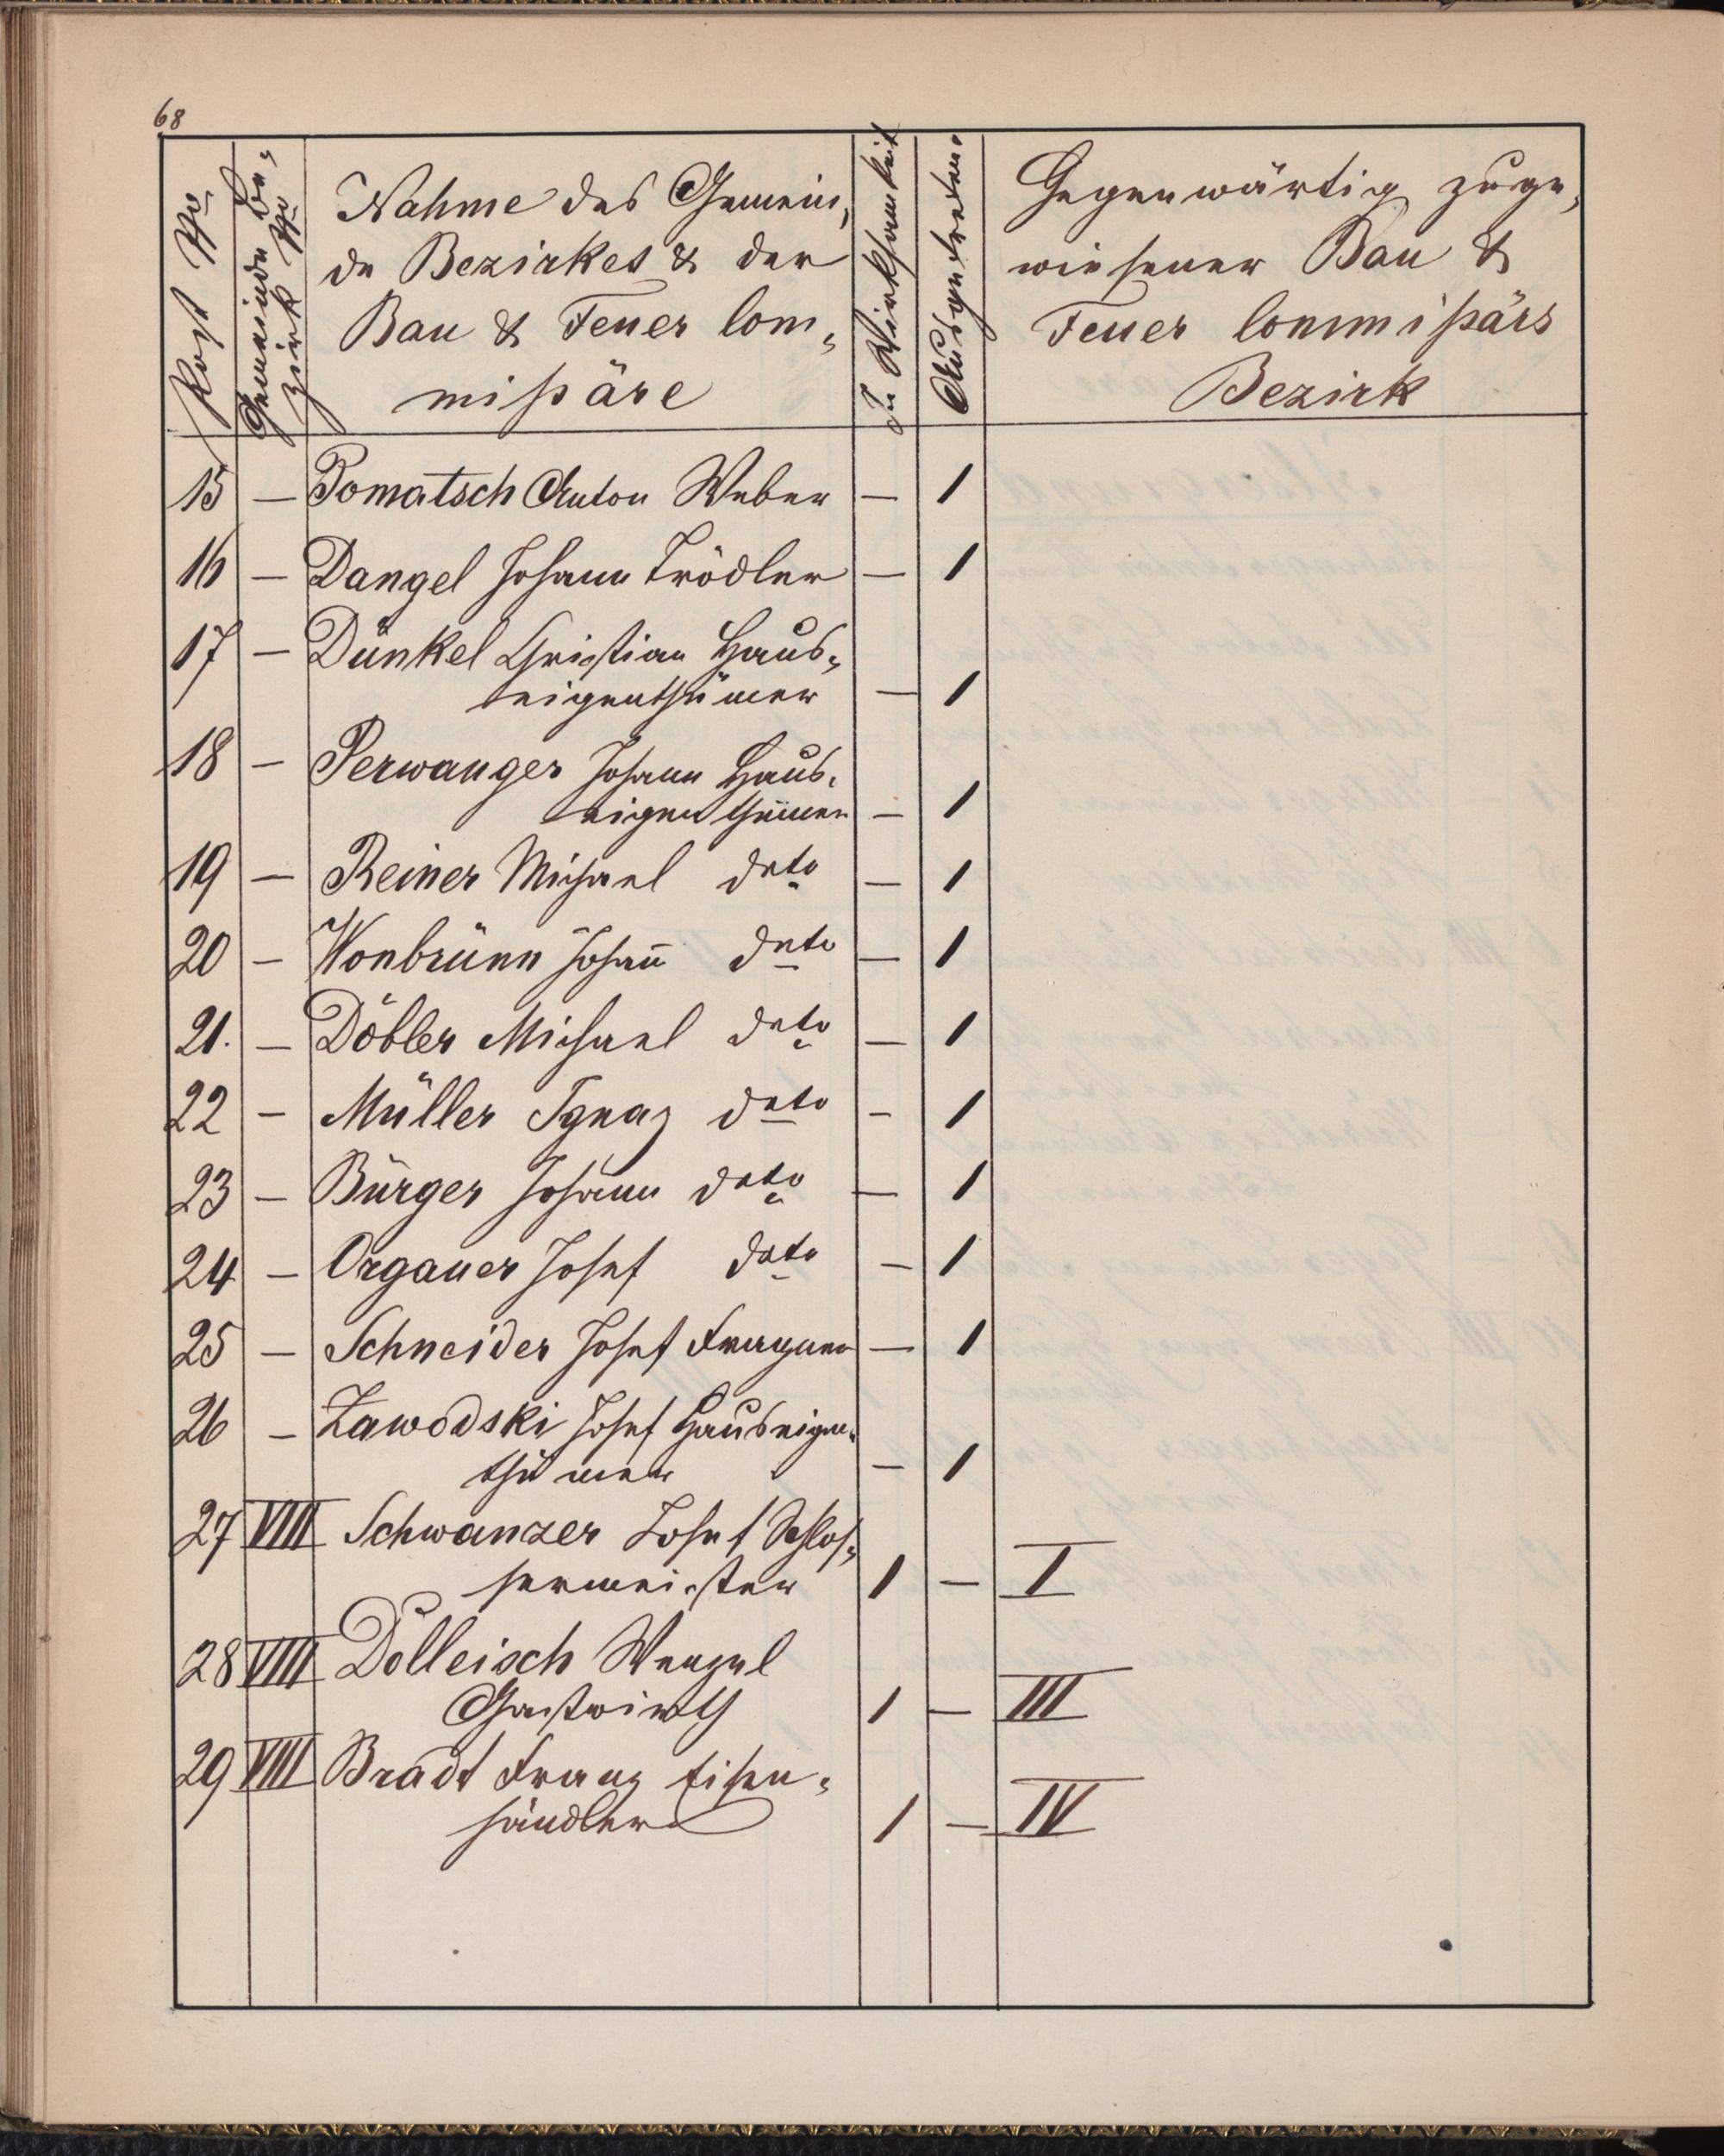 68
Post No
Gemeinde Be-
zirk No
Nahme des Gemein-
de Bezirkes & der
Bau & Feuer Com-
mißäre
In Wirksamkeit
Ausgetretene
Gegenwärtig zuge-
wiesener Bau &
Feuer Commißärs
Bezirk
15 — Pomatsch Anton Weber — 1
16 — Dangel Johann Trödler — 1
17 — Dünkel Christian Haus-
eigenthümer — 1
18 — Perwanger Johann Haus-
eigenthümer — 1
19 — Reiner Michael deto — 1
20 — Wonbrünn Johañ deto — 1
21. — Döbler Michael deto — 1
22 — Müller Ignaz deto — 1
23 — Bürger Johann deto — 1
24 — Organer Josef deto — 1
25 — Schneider Josef Fragner — 1
26 — Zawodski Josef Hauseigen-
thümer — 1
27 VIII Schwanzer Josef Schlos-
sermeister 1 — I
28 VIII Dolleisch Wenzel
Gastwirth 1 — III
29 VIII Bradt Franz Eisen-
händler 1 — IV